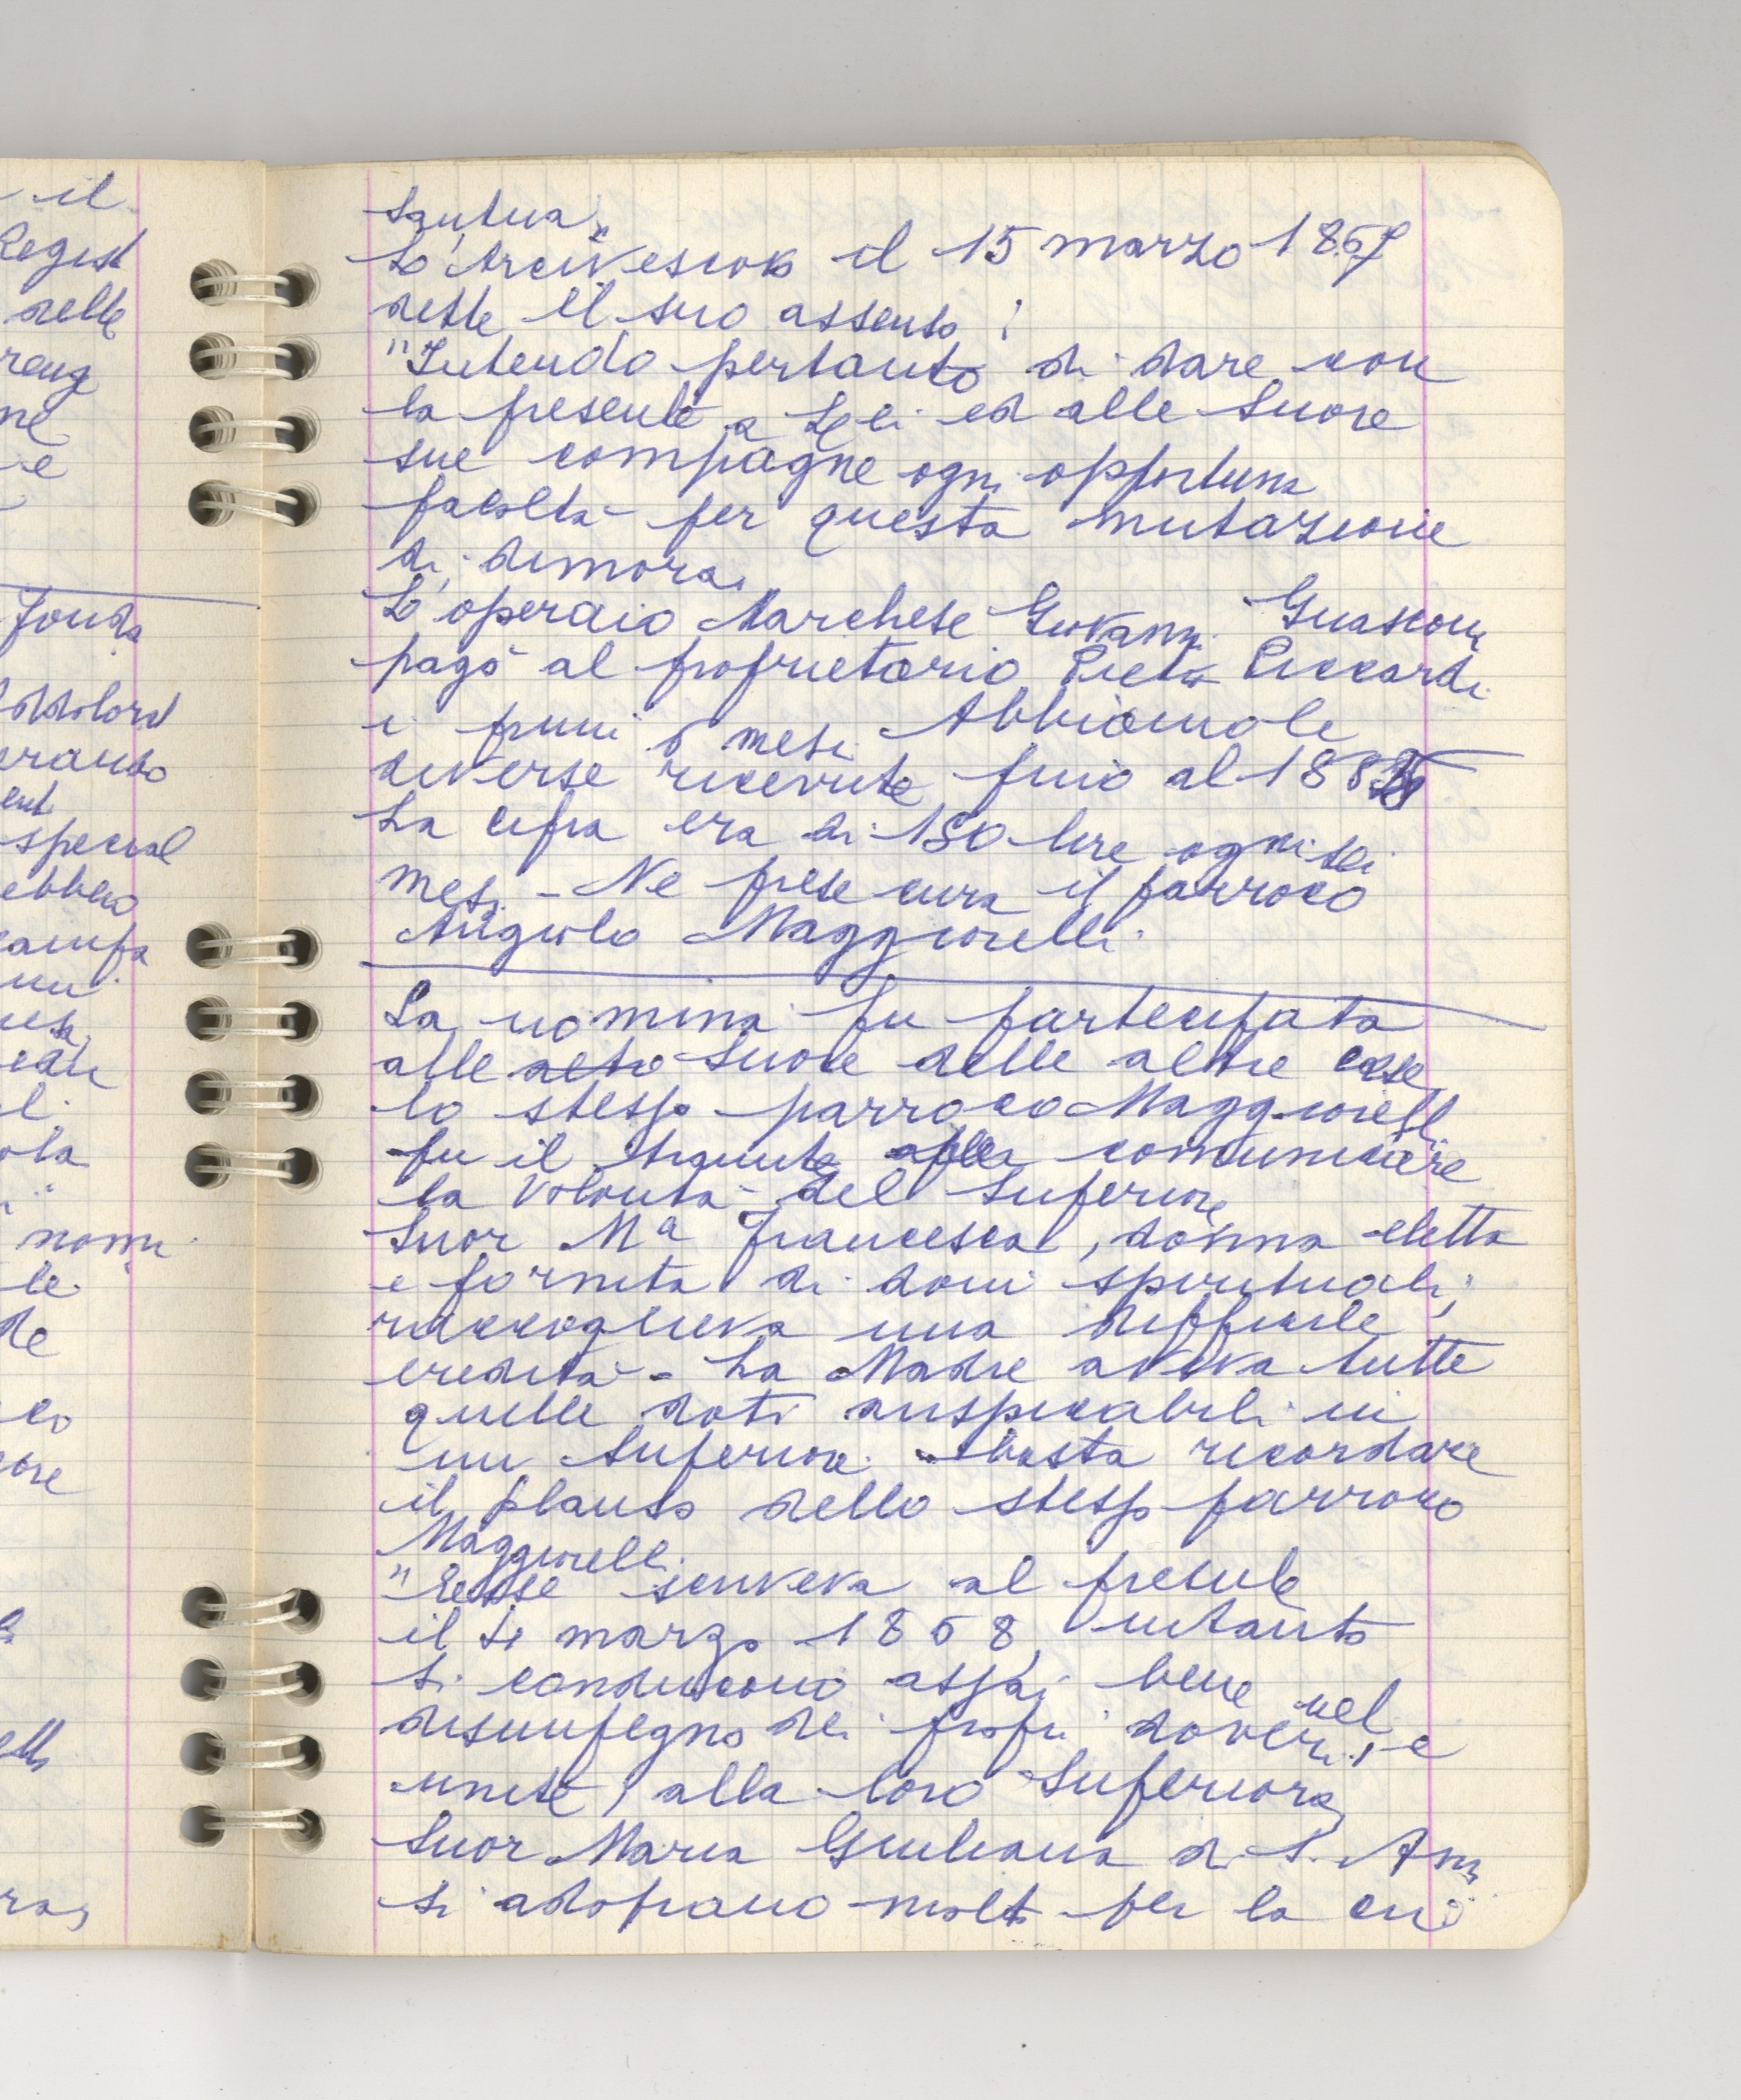 il
Regist
delle
ne
e
Fonda
Addolorat
erando
ent
special
ebbero
nomi
le
de
co
ore
L'Arcivescovo il 15 marzo 1867
dette il suo assenso:
"Intendo pertanto di dare con
la presente a Lei ed alle Suore
sue compagne ogni opportuna
facoltà per questa mutazione
di dimora.
L'operaio Marchese Giovanni Guasconi
pagò al proprietario Pietro Piccardi
i primi 6 mesi Abbiamo le
diverse ricevute fino al 188
La cifra era di 150 lire ogni sei
mesi - Ne prese cura il parroco
Angiolo Maggiorelli.
La nomina fu partecipata
alle altre Suore delle altre case
lo stesso parroco Maggiorelli
fu il tramite comunicare
la volontà del Superiore
Suor Mª Francesca, donna eletta
e fornita di doni spirituali,
raccoglieva una difficile
eredità - La Madre aveva tutte
quelle doti auspicabili in
un Superiore. basta ricordare
il plauso dello stesso parroco
Maggiorelli
"Esse scriveva al presule
il marzo 1868, intanto
si conducono assai bene nel
disimpegno dei propri doveri, e
unite alla loro Superiora
Suor Maria Giuliana di S. Anna
si adoprano molto per la